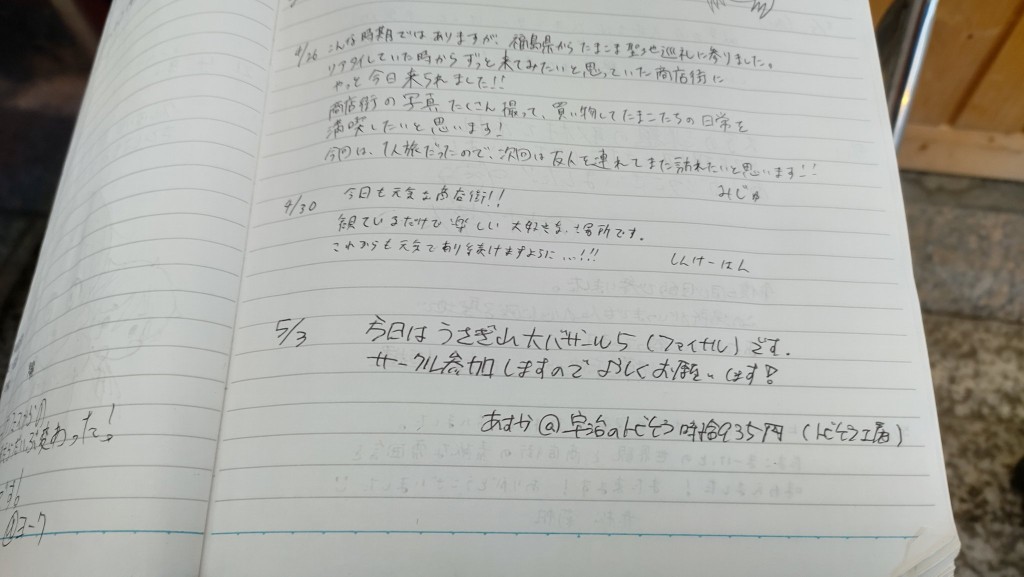 4/26 こんな時期ではありますが、福島県からたまこま聖地巡礼に参りました。
リアタイしていた時からずっと来てみたいと思っていた商店街に
やっと今日来られました!!
商店街の写真たくさん撮って、買い物してたまこたちの日常を
満喫したいと思います!
今回は、1人旅だったので、次回は友人を連れてまた訪れたいと思います!!
みじゅ
4/30 今日も元気な商店街!!
観ているだけで楽しい大好きな場所です。
これからも元気であり続けますように…!!!
しんけーはん
5/3 今日はうさぎ山大バザール5(ファイナル)です.
サークル参加しますのでよろしくお願いします!
あすか@宇治のトビそう時給935円(トビそう工房)
変わった!
@ヨーク